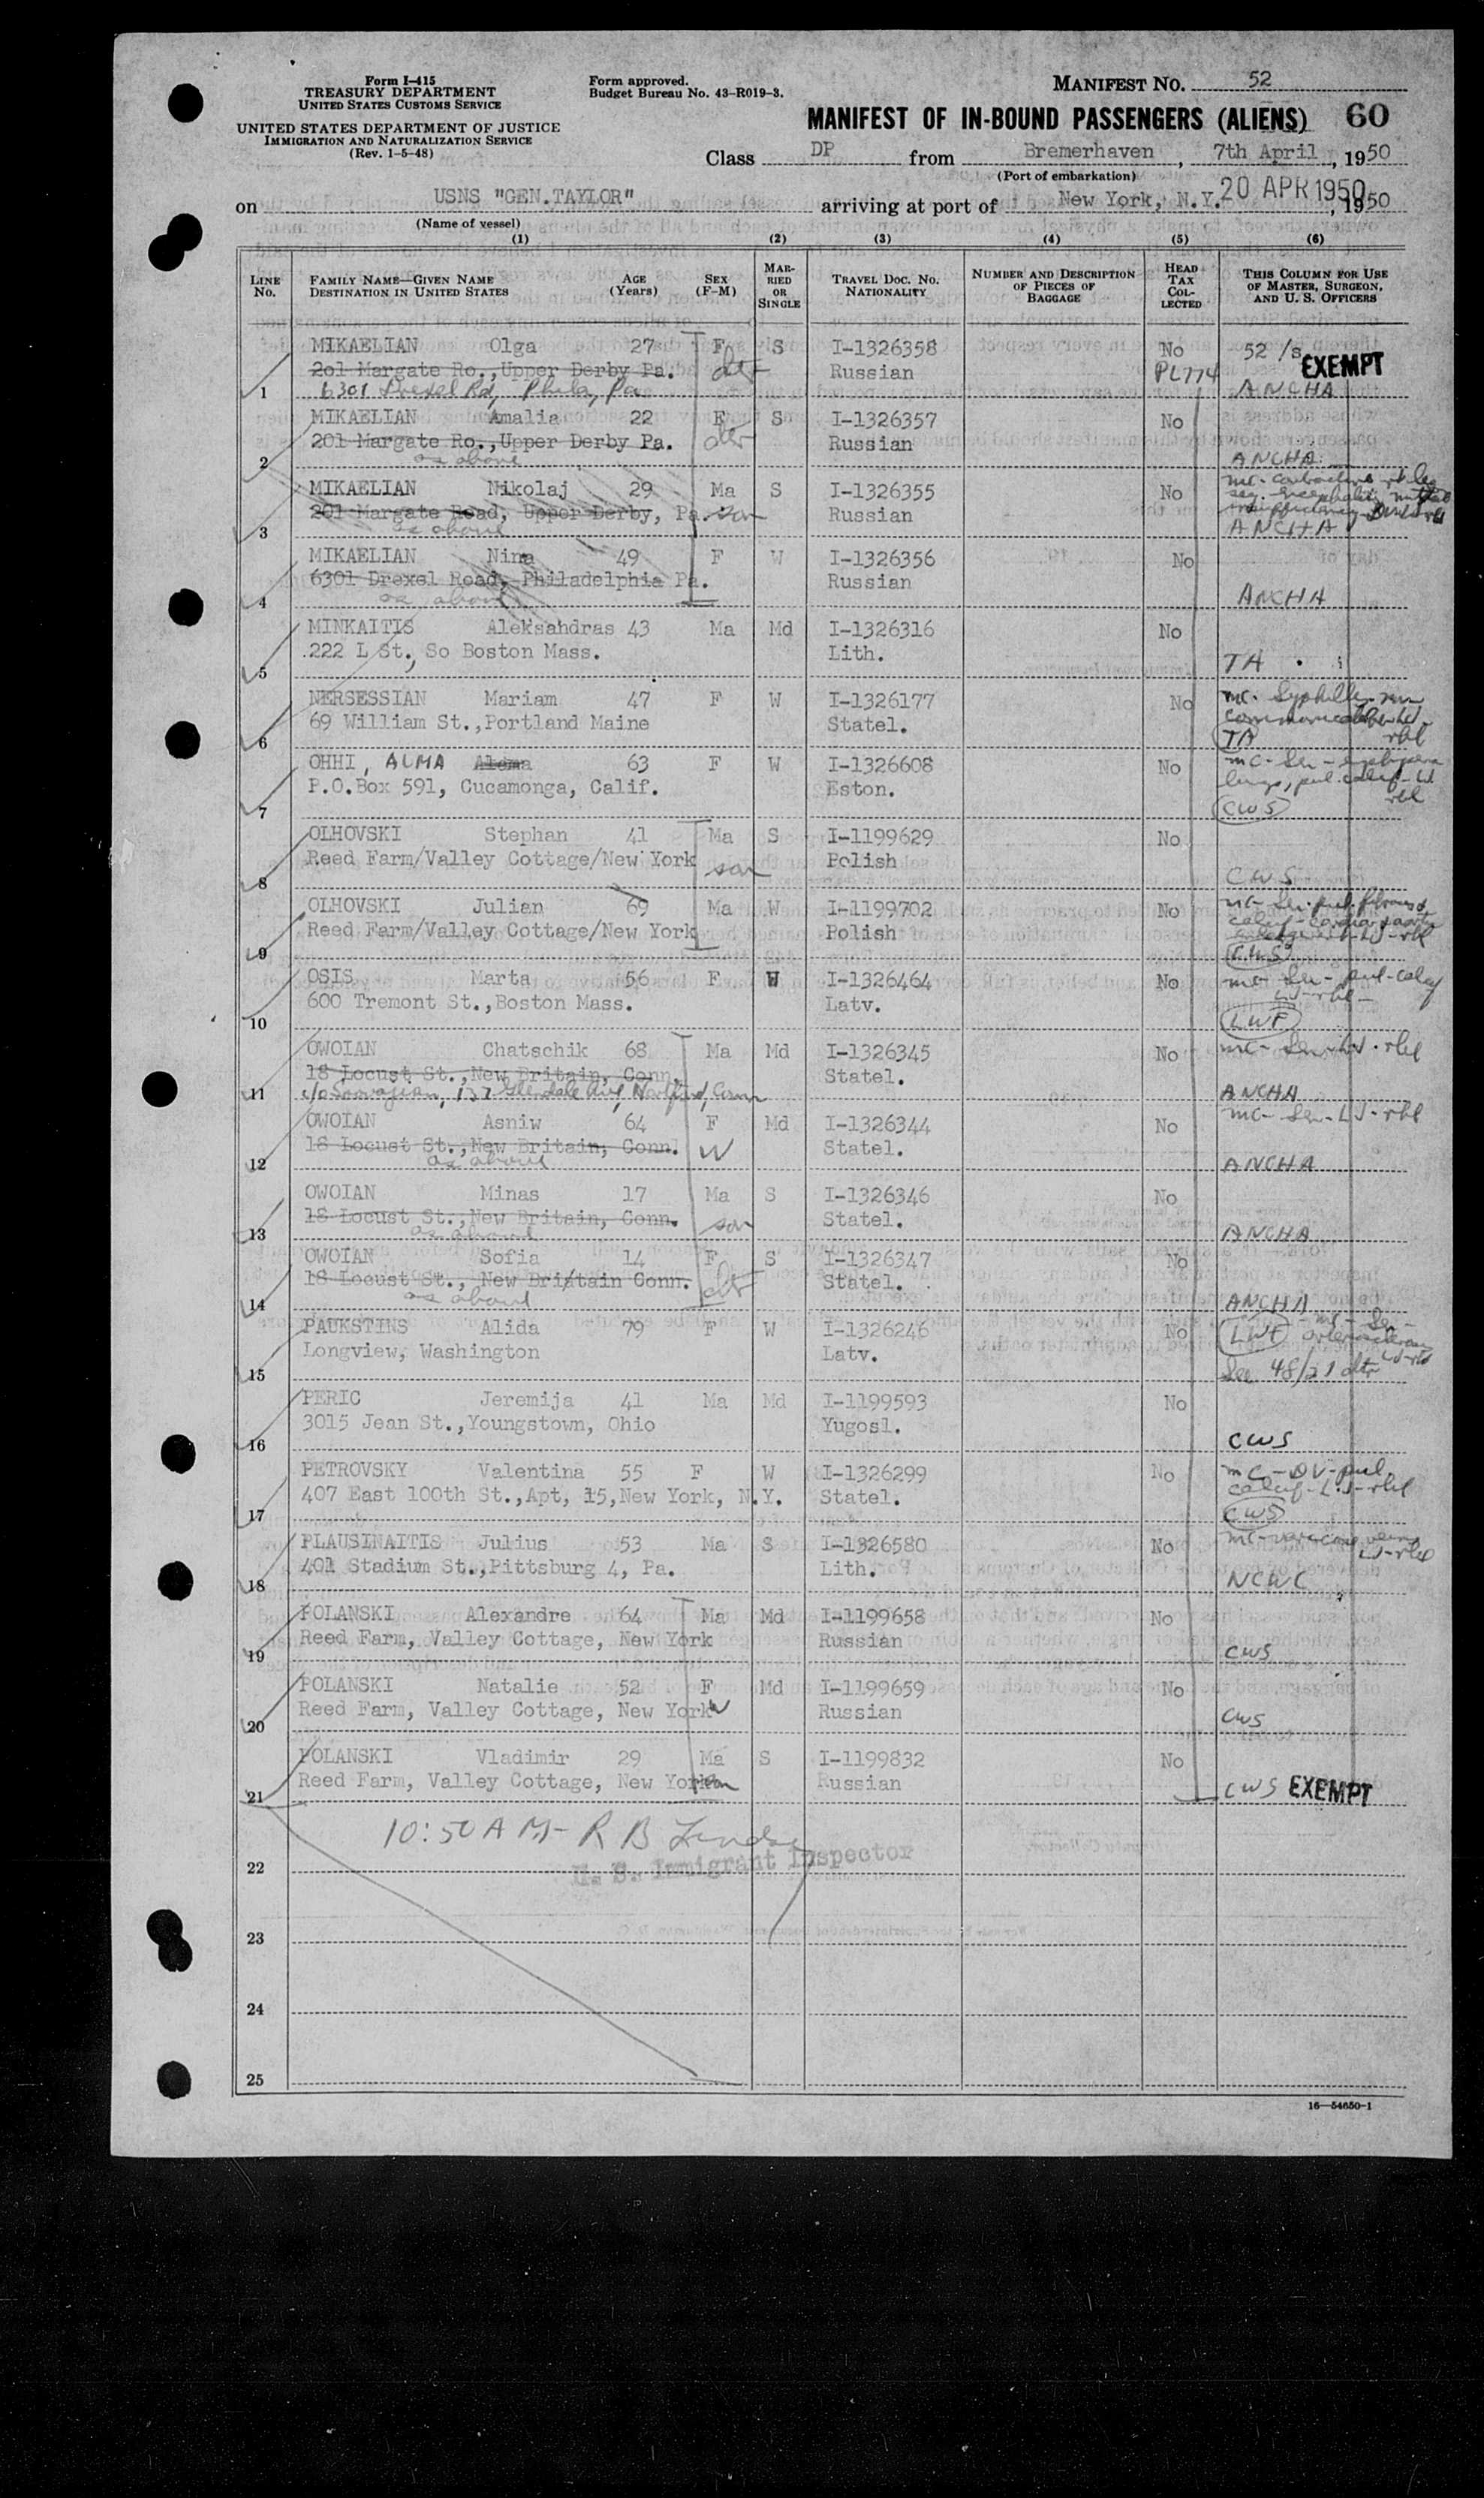 Form I-415
TREASURY DEPARTMENT
UNITED STATES CUSTOMS SERVICE
UNITED STATES DEPARTMENT OF JUSTICE
IMMIGRATION AND NATURALIZATION SERVICE
(Rev. 1-5-48)
Form approved.
Budget Bureau No. 43-R019-3.
MANIFEST NO. 52
MANIFEST OF IN-BOUND PASSENGERS (ALIENS) 60
Class DP from Bremerhaven, 7th April, 1950
(Port of embarkation)
on USNS "GEN.TAYLOR" arriving at port of New York, N.Y. 20 APR 1950, 1950
(Name of vessel)
(1) (2) (3) (4) (5) (6)
LINE No. FAMILY NAME—GIVEN NAME DESTINATION IN UNITED STATES AGE (Years) SEX (F-M) MARRIED OR SINGLE TRAVEL DOC. NO. NATIONALITY NUMBER AND DESCRIPTION OF PIECES OF BAGGAGE HEAD TAX COLLECTED THIS COLUMN FOR USE OF MASTER, SURGEON, AND U. S. OFFICERS
MIKAELIAN Olga 27 F S I-1326358 No 52/s EXEMPT
201 Margate Ro.,Upper Derby Pa. dtr Russian PL774
1 6301 Drexel Rd, Phila, Pa ANCHA
MIKAELIAN Amalia 22 F S I-1326357 No
201 Margate Ro.,Upper Derby Pa. dtr Russian
2 as above ANCHA
MIKAELIAN Nikolaj 29 Ma S I-1326355 No
201 Margate Road, Upper Derby, Pa. son Russian
3 as above ANCHA
MIKAELIAN Nina 49 F W I-1326356 No
6301 Drexel Road, Philadelphia Pa. Russian
4 as above ANCHA
MINKAITIS Aleksahdras 43 Ma Md I-1326316 No
222 L St., So Boston Mass. Lith.
5 TA
NERSESSIAN Mariam 47 F W I-1326177 No
69 William St.,Portland Maine Statel.
6 TA
OHHI, ALMA 63 F W I-1326608 No
P.O.Box 591, Cucamonga, Calif. Eston.
7 CWS
OLHOVSKI Stephan 41 Ma S I-1199629 No
Reed Farm/Valley Cottage/New York son Polish
8 CWS
OLHOVSKI Julian 69 Ma W I-1199702 No
Reed Farm/Valley Cottage/New York Polish
9 CWS
OSIS Marta 56 F W I-1326464 No
600 Tremont St.,Boston Mass. Latv.
10 LWF
OWOIAN Chatschik 68 Ma Md I-1326345 No
18 Locust St.,New Britain, Conn. Statel.
11 137 Glendale Ave, Hartford, Conn ANCHA
OWOIAN Asniw 64 F Md I-1326344 No
18 Locust St.,New Britain, Conn. W Statel.
12 as above ANCHA
OWOIAN Minas 17 Ma S I-1326346 No
18 Locust St.,New Britain, Conn. son Statel.
13 as above ANCHA
OWOIAN Sofia 14 F S I-1326347 No
18 Locust St., New Britain Conn. dtr Statel.
14 as above ANCHA
PAUKSTINS Alida 79 F W I-1326246 No LWF
Longview, Washington Latv.
15 See 48/21 dtr
PERIC Jeremija 41 Ma Md I-1199593 No
3015 Jean St.,Youngstown, Ohio Yugosl.
16 CWS
PETROVSKY Valentina 55 F W I-1326299 No
407 East 100th St.,Apt, 15,New York, N.Y. Statel.
17 CWS
PLAUSINAITIS Julius 53 Ma S I-1326580 No
401 Stadium St.,Pittsburg 4, Pa. Lith.
18 NCWC
POLANSKI Alexandre 64 Ma Md I-1199658 No
Reed Farm, Valley Cottage, New York Russian
19 CWS
POLANSKI Natalie 52 F Md I-1199659 No
Reed Farm, Valley Cottage, New York W Russian
20 CWS
POLANSKI Vladimir 29 Ma S I-1199832 No
Reed Farm, Valley Cottage, New York son Russian
21 CWS EXEMPT
10:50 AM- R B
22 U. S. Immigrant Inspector
23
24
25
16—54650-1